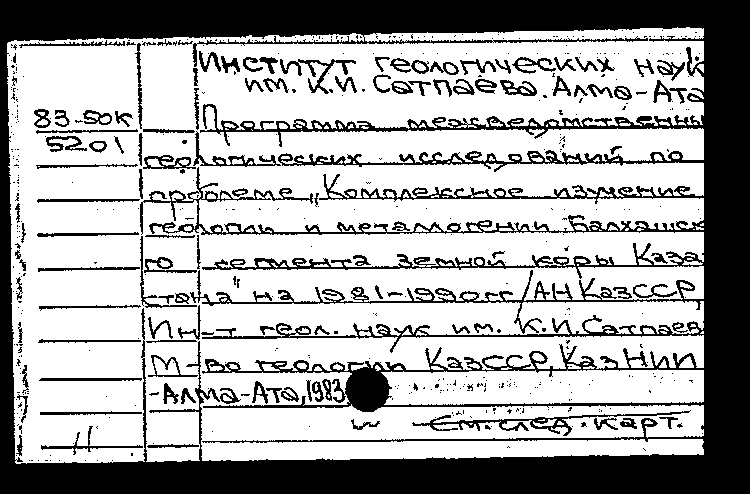 Институт геологических наук
им. К.И. Сатпаева. Алма-Ата
83-50к
5201
Программа межведомственны
геологических исследований по
проблеме „Комплексное изучение
геологии и металлогении Балхашск
го сегмента земной коры Каза
стана" на 1981-1990гг/АН КазССР,
Ин-т геол. наук им. К.И. Сатпаев
М-во геологии КазССР, КазНИИ
-Алма-Ата, 1983
См. след. карт.
11